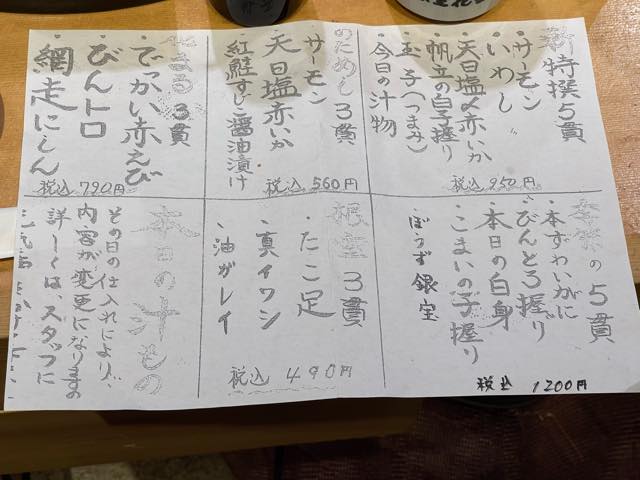 新特撰5貫
・サーモン
・いわし
・天日塩〆赤いか
・帆立の白子握り
・玉子(つまみ)
・今日の汁物
税込 950円
おためし3貫
・サーモン
・天日塩赤いか
・紅鮭すじこ醤油漬け
税込 560円
3貫
・でっかい赤えび
・びんトロ
・網走にしん
税込 790円
の5貫
・本ずわいがに
・びんとろ握り
・本日の白身
・こまいの子握り
・ぼうず銀宝
税込 1200円
根室3貫
・たこ足
・真イワシ
・油ガレイ
税込 490円
本日の汁もの
その日の仕入れにより、
内容が変更になりますの
詳しくは、スタッフに